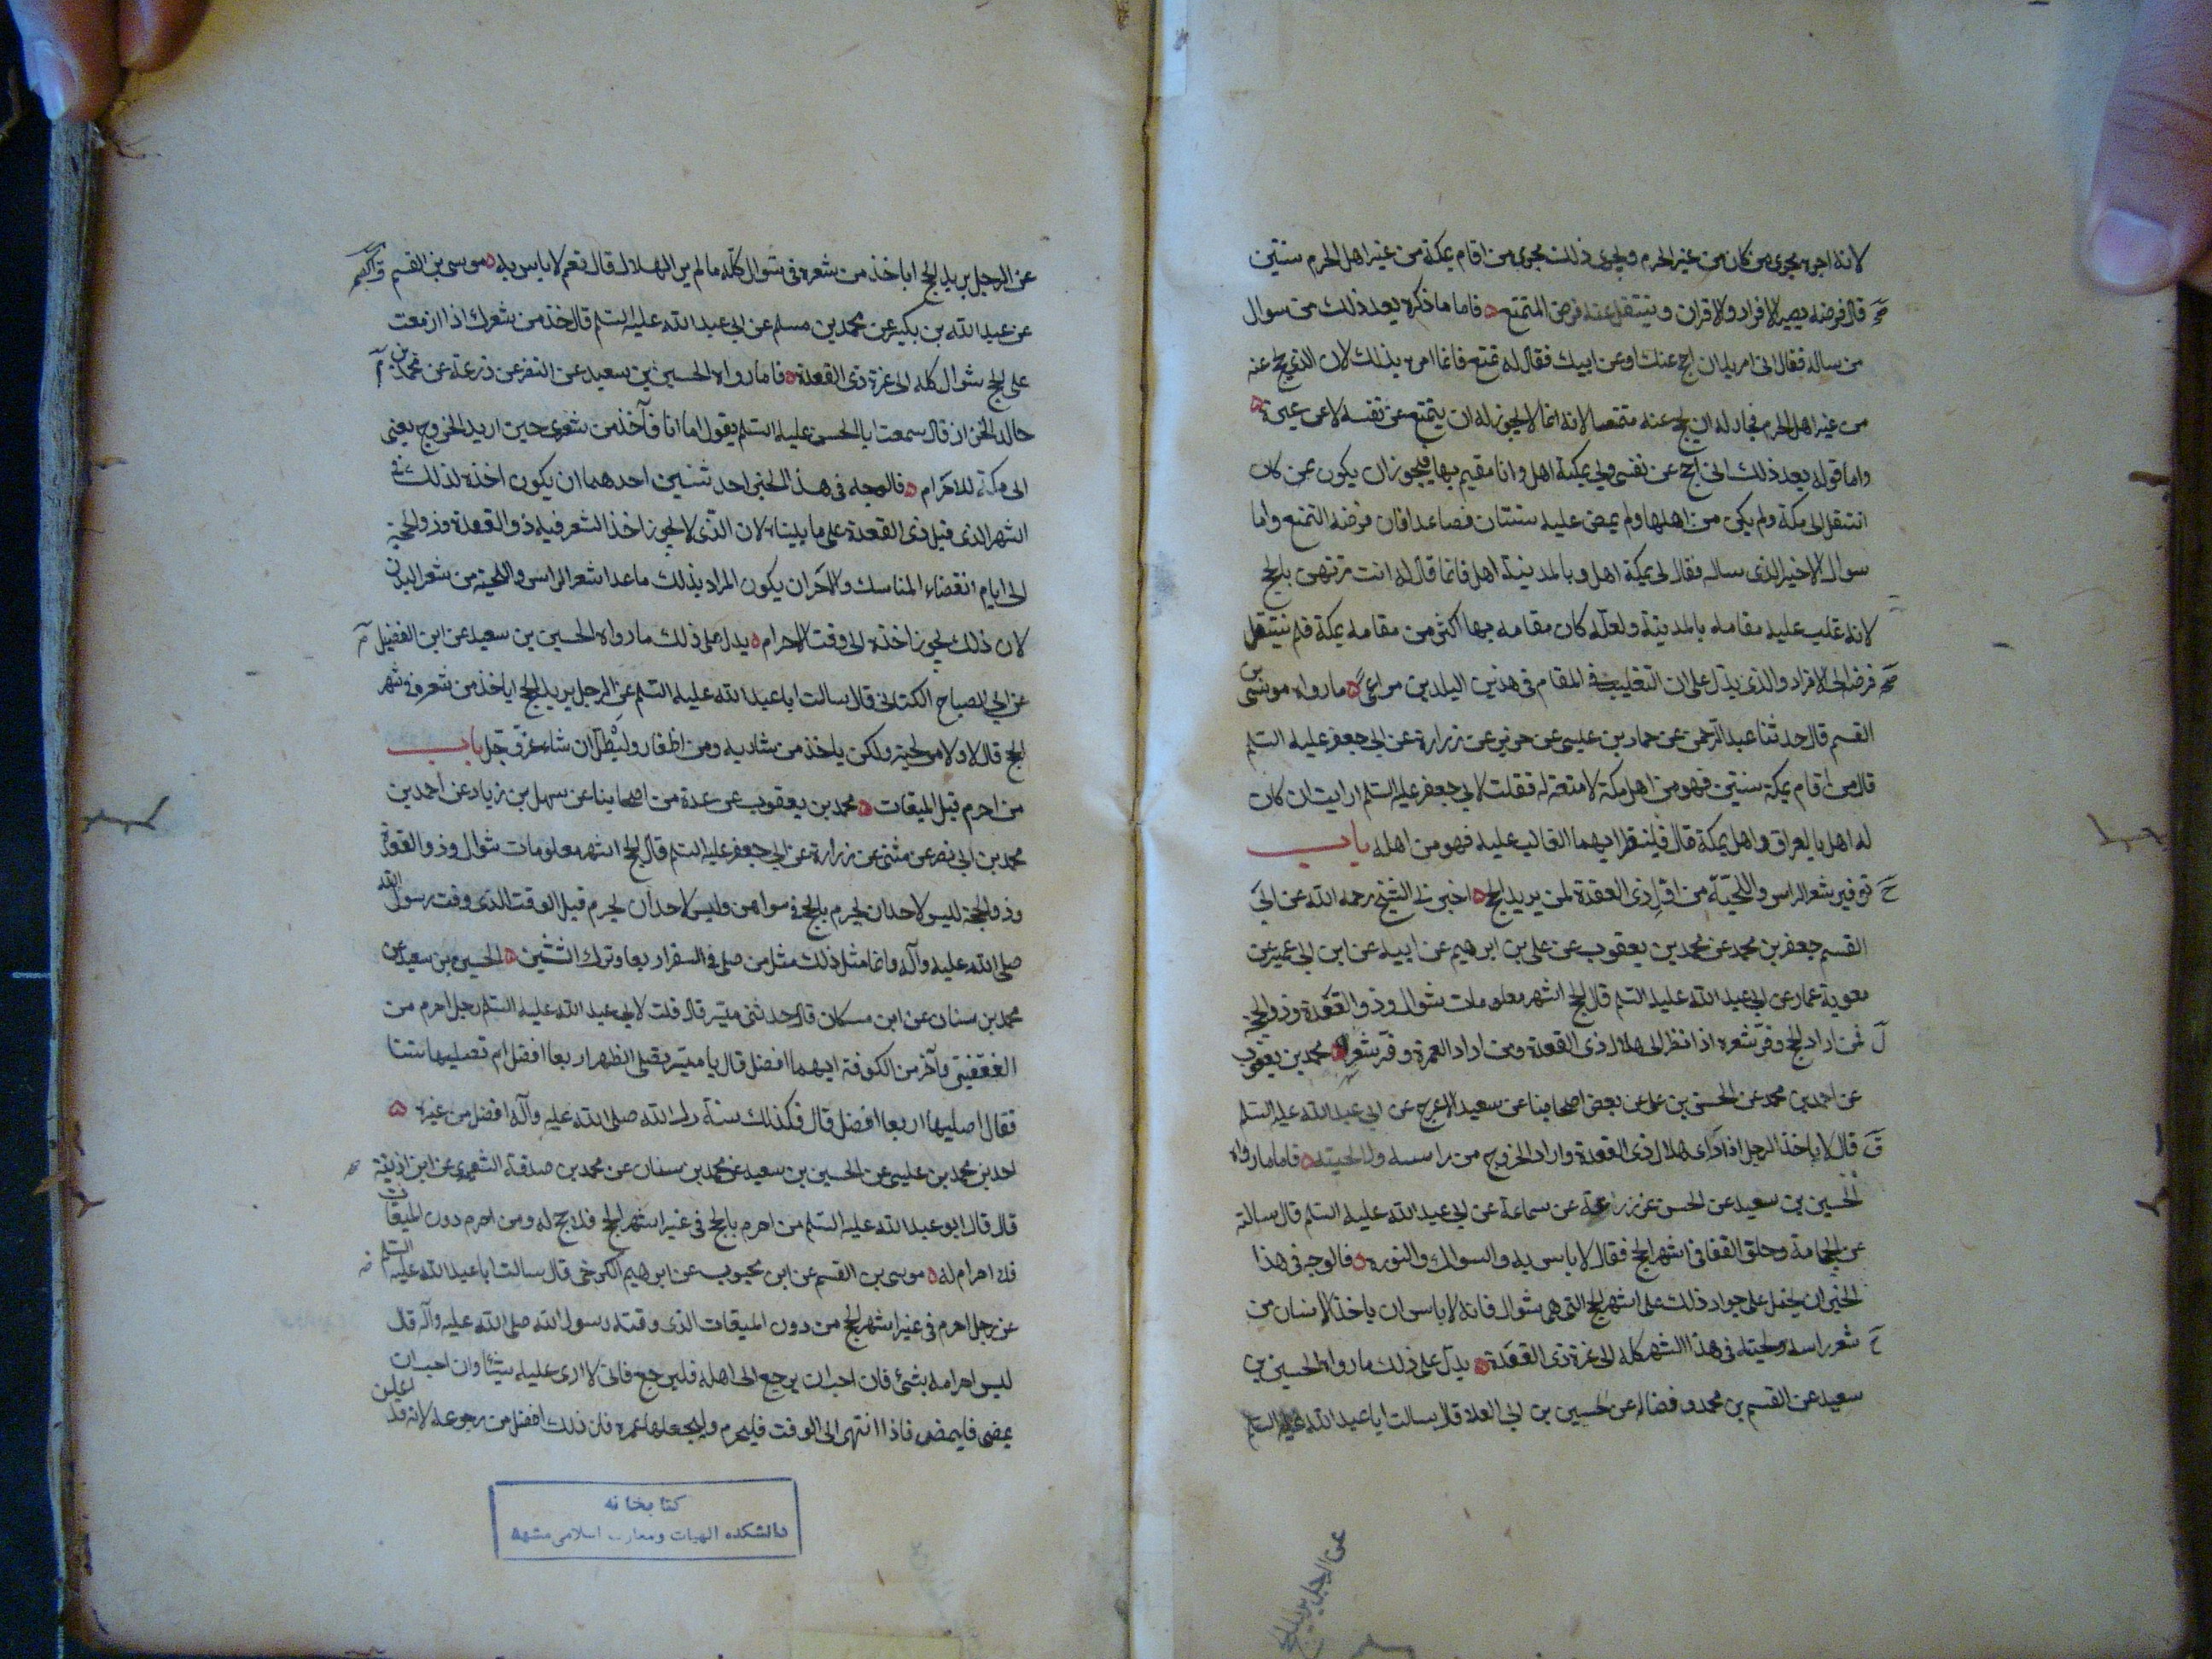 لانه اجرى مجرى من كان من غير الحرم ويجرى ذلك مجرى من اقام بمكة من غير اهل الحرم سنتين
قال فرضه يصير الافراد والاقران وينتقل عنه فرض المتمتع فاما ما ذكره بعد ذلك من سوال
من ساله فقال انى اريد ان احج عنك او عن ابيك فقال له تمتع فانما امره بذلك لان الذى يحج عنه
من غير اهل الحرم فجاز له ان يحج عنه متمتعا لانه انما لا يجوز له ان يتمتع عن نفسه لا عن غيره
واما قوله بعد ذلك انى احج عن نفسى ولى بمكة اهل وانا مقيم بها فيجوز ان يكون ممن كان
انتقل الى مكة ولم يكن من اهلها ولم يمض عليه سنتان فصاعدا فان فرضه التمتع واما
سوال الاخير الذى ساله فقال لى بمكة اهل وبالمدينة اهل فانما قال له انت مرتهن بالحج
لانه غلب عليه مقامه بالمدينة ولعله كان مقامه بها اكثر من مقامه بمكة فلم ينتقل
فرضه الى الافراد والذى يدل على ان التغليب فى المقام فى هذين البلدين مراعى ما رواه موسى بن
القسم قال حدثنا عبد الرحمن عن حماد بن عيسى عن حريز عن زرارة عن ابى جعفر عليه السلم
قال من اقام بمكة سنتين فهو من اهل مكة لا متعة له فقلت لابى جعفر عليه السلم ارايت ان كان
له اهل بالعراق واهل بمكة قال فلينظر ايهما الغالب عليه فهو من اهله باب
توفير شعر الراس واللحية من اول ذى القعدة لمن يريد الحج اخبرنى الشيخ رحمه الله عن ابى
القسم جعفر بن محمد عن محمد بن يعقوب عن على بن ابرهيم عن ابيه عن ابن ابى عمير عن
معوية عمار عن ابى عبد الله عليه السلم قال الحج اشهر معلومات شوال وذو القعدة وذو الحجة
فمن اراد الحج وفر شعره اذا نظر الى هلال ذى القعدة ومن اراد العمرة وفر شعره محمد بن يعقوب
عن احمد بن محمد عن الحسن بن على عن بعض اصحابنا عن سعيد الاعرج عن ابى عبد الله عليه السلم
قال لا ياخذ الرجل اذا رأى هلال ذى القعدة واراد الخروج من راسه ولا لحيته فاما ما رواه
الحسين بن سعيد عن الحسن عن زرعة عن سماعة عن ابى عبد الله عليه السلم قال سالته
عن الحجامة وحلق القفا فى اشهر الحج فقال لا باس به والسواك والنوره فالوجه فى هذا
الخبر ان يحمل على جواز ذلك على اشهر الحج التى هى شوال فانه لا باس ان ياخذ الانسان من
شعر راسه ولحيته فى هذا الشهر كله الى غرة ذى القعدة يدل على ذلك ما رواه الحسين بن
سعيد عن القسم بن محمد وفضاله عن حسين بن ابى العلا قال سالت ابا عبد الله عليه السلم
عن الرجل يريد الحج
عن الرجل يريد الحج اياخذ من شعره فى شوال كله ما لم ير الهلال قال نعم لا باس به موسى بن القسم
عن عبد الله بن بكير عن محمد بن مسلم عن ابى عبد الله عليه السلم قال خذ من شعرك اذا ازمعت
على الحج شوال كله الى غرة ذى القعدة فاما رواه الحسين بن سعيد عن النضر عن زرعة عن محمد بن
خالد الخزاز قال سمعت ابا الحسن عليه السلم يقول اما انا فآخذ من شعرى حين اريد الخروج يعنى
الى مكة للاحرام فالوجه فى هذا الخبر احد شيئين احدهما ان يكون اخذه لذلك فى
الشهر الذى قبل ذى القعدة على ما بيناه لان الذى لا يجوز اخذ الشعر فيه ذو القعدة وذو الحجة
الى ايام انقضاء المناسك والآخر ان يكون المراد بذلك ما عدا شعر الراس واللحية من شعر البدن
لان ذلك يجوز اخذه الى وقت الاحرام يدل على ذلك ما رواه الحسين بن سعيد عن ابن الفضيل
عن ابى الصباح الكنانى قال سالت ابا عبد الله عليه السلم عن الرجل يريد الحج اياخذ من شعره فى شهر
الحج قال لا ولا من لحيته ولكن ياخذ من شاربه ومن اظفاره وليطل ان شاء عز وجل باب
من احرم قبل الميقات محمد بن يعقوب عن عدة من اصحابنا عن سهل بن زياد عن احمد بن
محمد بن ابى نصر عن مثنى عن زرارة عن ابى جعفر عليه السلم قال الحج اشهر معلومات شوال وذو القعدة
وذو الحجة ليس لاحد ان يحرم بالحج فى سواهن وليس لاحد ان يحرم قبل الوقت الذى وقت رسول الله
صلى الله عليه وآله وانما مثل ذلك مثل من صلى فى السفر اربعا وترك الثنتين الحسين بن سعيد عن
محمد بن سنان عن ابن مسكان قال حدثنى ميسر قال قلت لابى عبد الله عليه السلم رجل احرم من
العقيق وآخر من الكوفة ايهما افضل قال يا ميسر تصلى الظهر اربعا افضل ام تصليها ستا
فقال اصليها اربعا افضل قال فكذلك سنة رسول الله صلى الله عليه وآله افضل من غيره
احمد بن محمد بن عيسى عن الحسين بن سعيد عن محمد بن سنان عن محمد بن صدقة الشعيرى عن ابن اذينة
قال قال ابو عبد الله عليه السلم من احرم بالحج فى غير اشهر الحج فلا حج له ومن احرم دون الميقات
فلا احرام له موسى بن القسم عن ابن محبوب عن ابرهيم الكرخى قال سالت ابا عبد الله عليه السلم
عن رجل احرم فى غير اشهر الحج من دون الميقات الذى وقته رسول الله صلى الله عليه وآله قال
ليس احرامه بشئ فان احب ان يرجع الى اهله فليرجع فانى لا ارى عليه شيئا وان احب ان
يمضى فليمض فاذا انتهى الى الوقت فليحرم وليجعلها عمرة فان ذلك افضل من رجوعه لانه قد اعلن
كتابخانه
دانشكده الهيات ومعارف اسلامى مشهد